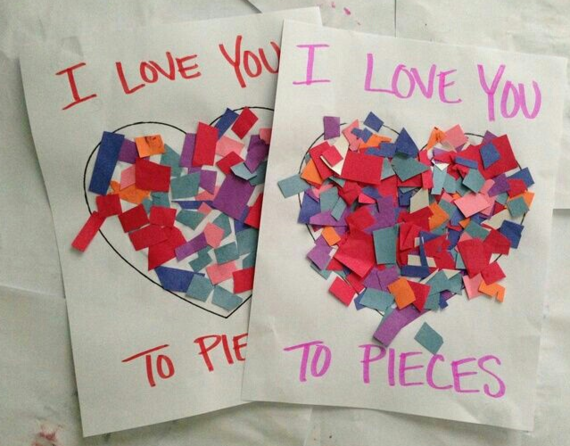 I LOVE YOU
TO PIE
I LOVE YOU
TO PIECES